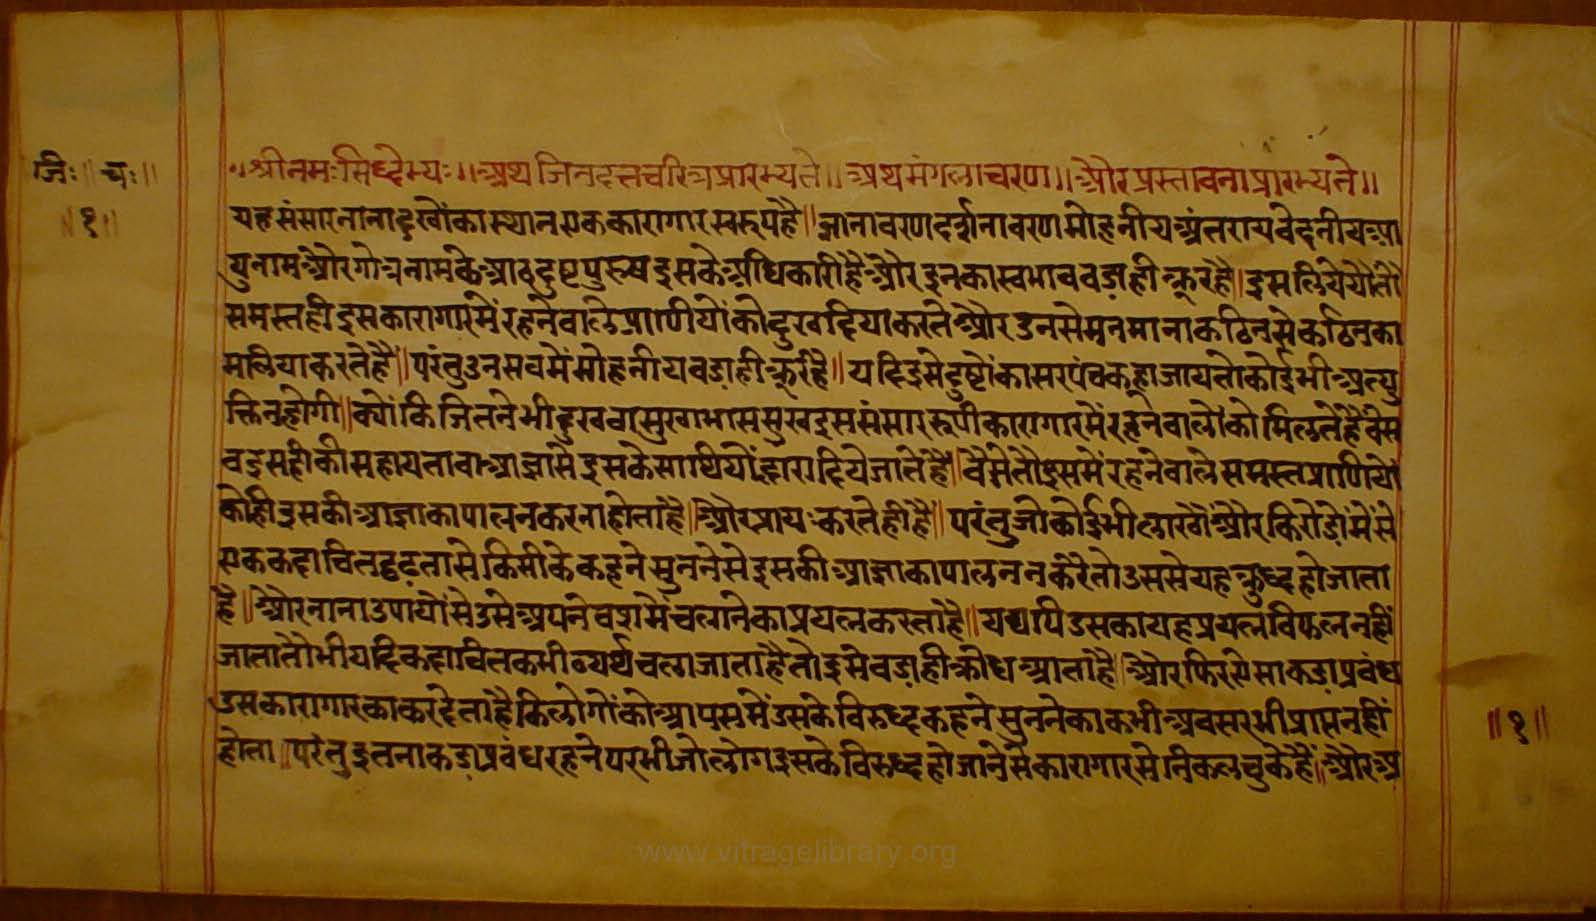 जिः॥ चः॥
॥१॥
॥श्रीनमःसिध्देभ्यः॥ अथ जिनदत्तचरित्र प्रारभ्यते॥ अथ मंगलाचरण॥ और प्रस्तावना प्रारभ्यते॥
यह संसार नाना दुखों का स्थान एक कारागार स्वरुप है॥ ज्ञानावरण दर्शनावरण मोहनीय अंतराय वेदनीय आ
यु नाम और गोत्र नाम के आठ दुष्ट पुरुष इसके अधिकारी है और इनका स्वभाव बडा ही क्रूर है॥ इसलिये यौ तो
समस्त ही इस कारागार में रहने वाले प्राणीयों को दुख दिया करते और उनसे मनमाना कठिन से कठिन का
म लिया करते है॥ परंतु उन सब में मोहनीय बडा ही क्रूर है॥ यदि इसे दुष्टों का सरपंच कहा जाय तो कोई भी अत्यु
क्ति न होगी॥ क्यों कि जितने भी दुख वा सुखाभास सुख इस संसार रूपी कारागार में रहने वालों को मिलते है वे स
ब इस ही की सहायता वा आज्ञा से इसके साथियों द्वारा दिये जाते है॥ वैसे तौ इसमें रहने वाले समस्त प्राणियों
को ही इसकी आज्ञा का पालन करना होता है॥ और प्रायः करते ही है॥ परंतु जो कोई भी लाखों और किरोडो में से
एक कदाचित दृढता से किसी के कहने सुनने से इसकी आज्ञा का पालन न करै तो उससे यह क्रुध्द हो जाता
है॥ और नाना उपायों से उसे अपने वश में चलाने का प्रयत्न करता है॥ यद्यपी उसका यह प्रयत्न विफल नहीं
जाता तौ भी यदि कदाचित कभी व्यर्थ चला जाता है तो इसे बडा ही क्रोध आता है॥ और फिर ऐसा कडा प्रबंध
उस कारागार का कर देता है कि लोगों को आपस में उसके विरुध्द कहने सुनने का कभी अवसर भी प्राप्त नहीं
होता॥ परंतु इतना कडा प्रबंध रहने पर भी जो लोग इसके विरुध्द हो जाने से कारागार से निकल चुके है॥ और अ
॥१॥
www.vitragelibrary.org